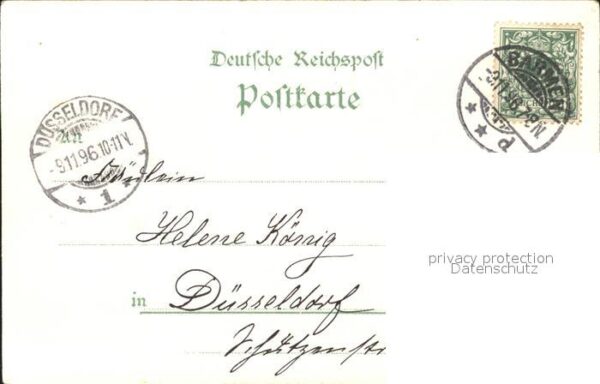 Deutsche Reichspost
Postkarte
BARMEN
P
DÜSSELDORF
9.11.96.10-11V.
* 1 *
An
Fräulein
Helene König
in Düsseldorf
Schützenstr
privacy protection
Datenschutz